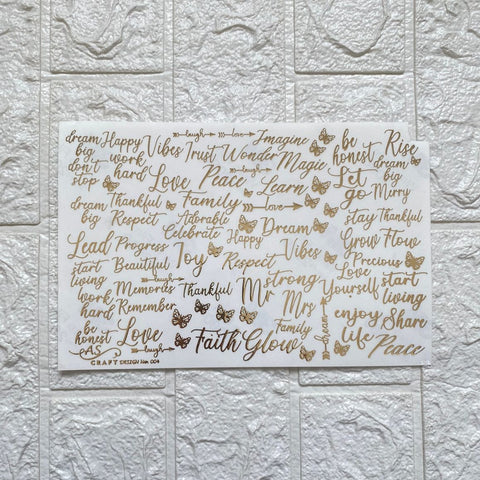 dream Happy Vibes Trust laugh love Imagine be Rise
big work Wonder Magic honest dream
don't hard Love Peace laugh Learn Let big
stop go Merry
dream Thankful Family love stay Thankful
big Respect Adorable Dream Grow Flow
Lead Progress Celebrate Happy Vibes Precious
start Beautiful Joy Respect Love start
living Memories laugh Thankful Mr strong Yourself living
work Remember Mrs enjoy Share
hard Love Family dream life Peace
be laugh Faith Glow
honest
AS
CRAFT DESIGN Nm 004